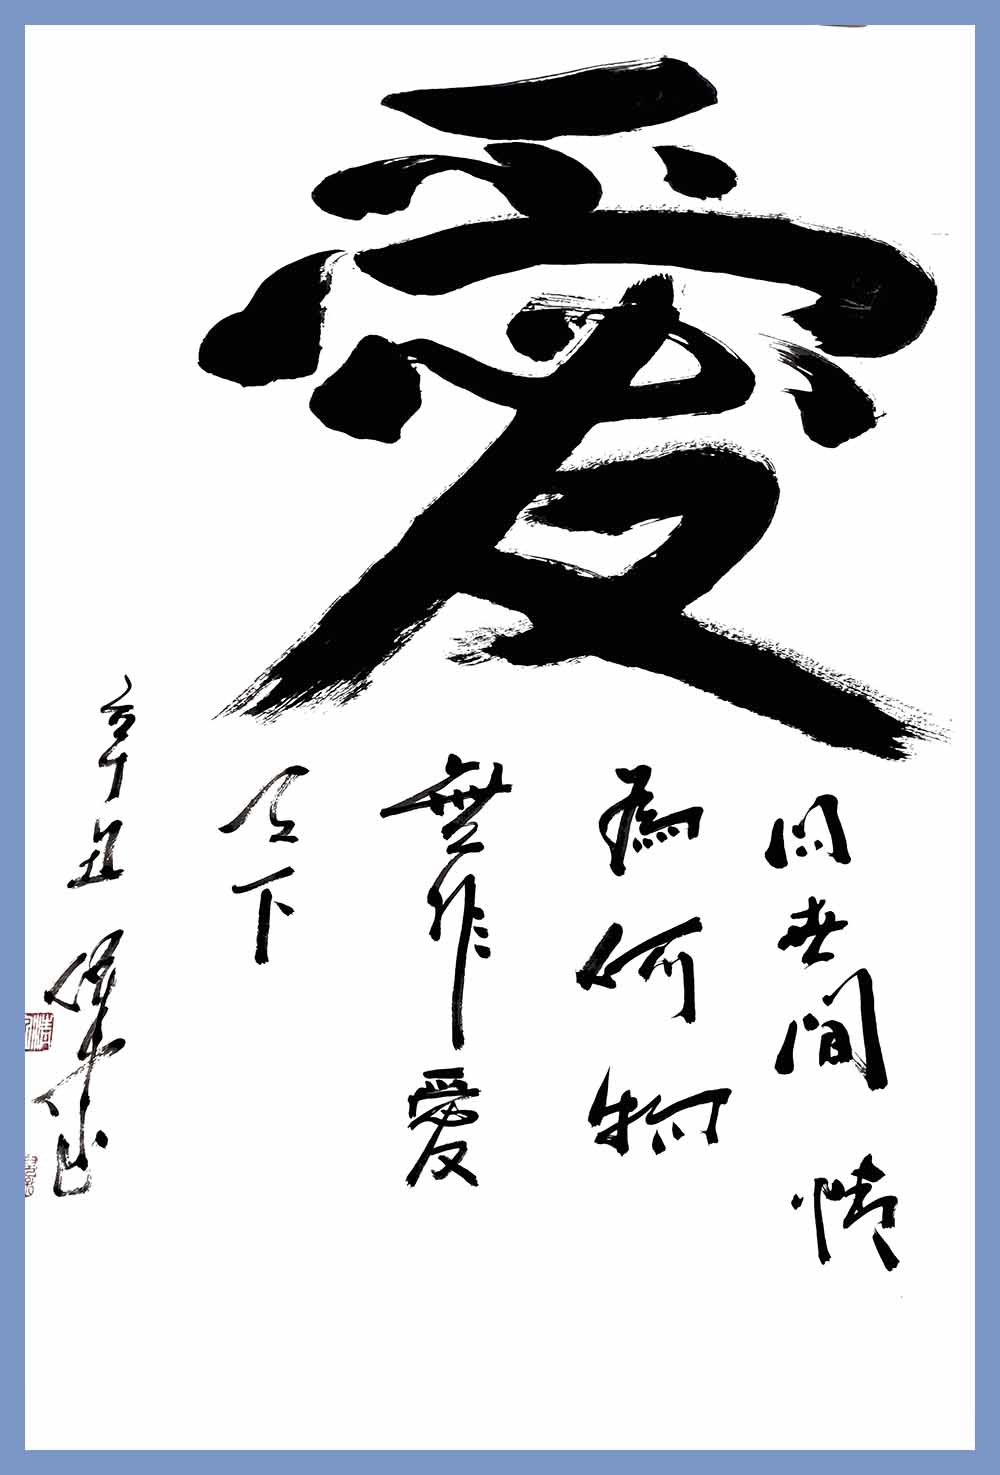 愛
問世間情
為何物
無非愛
天下
辛丑